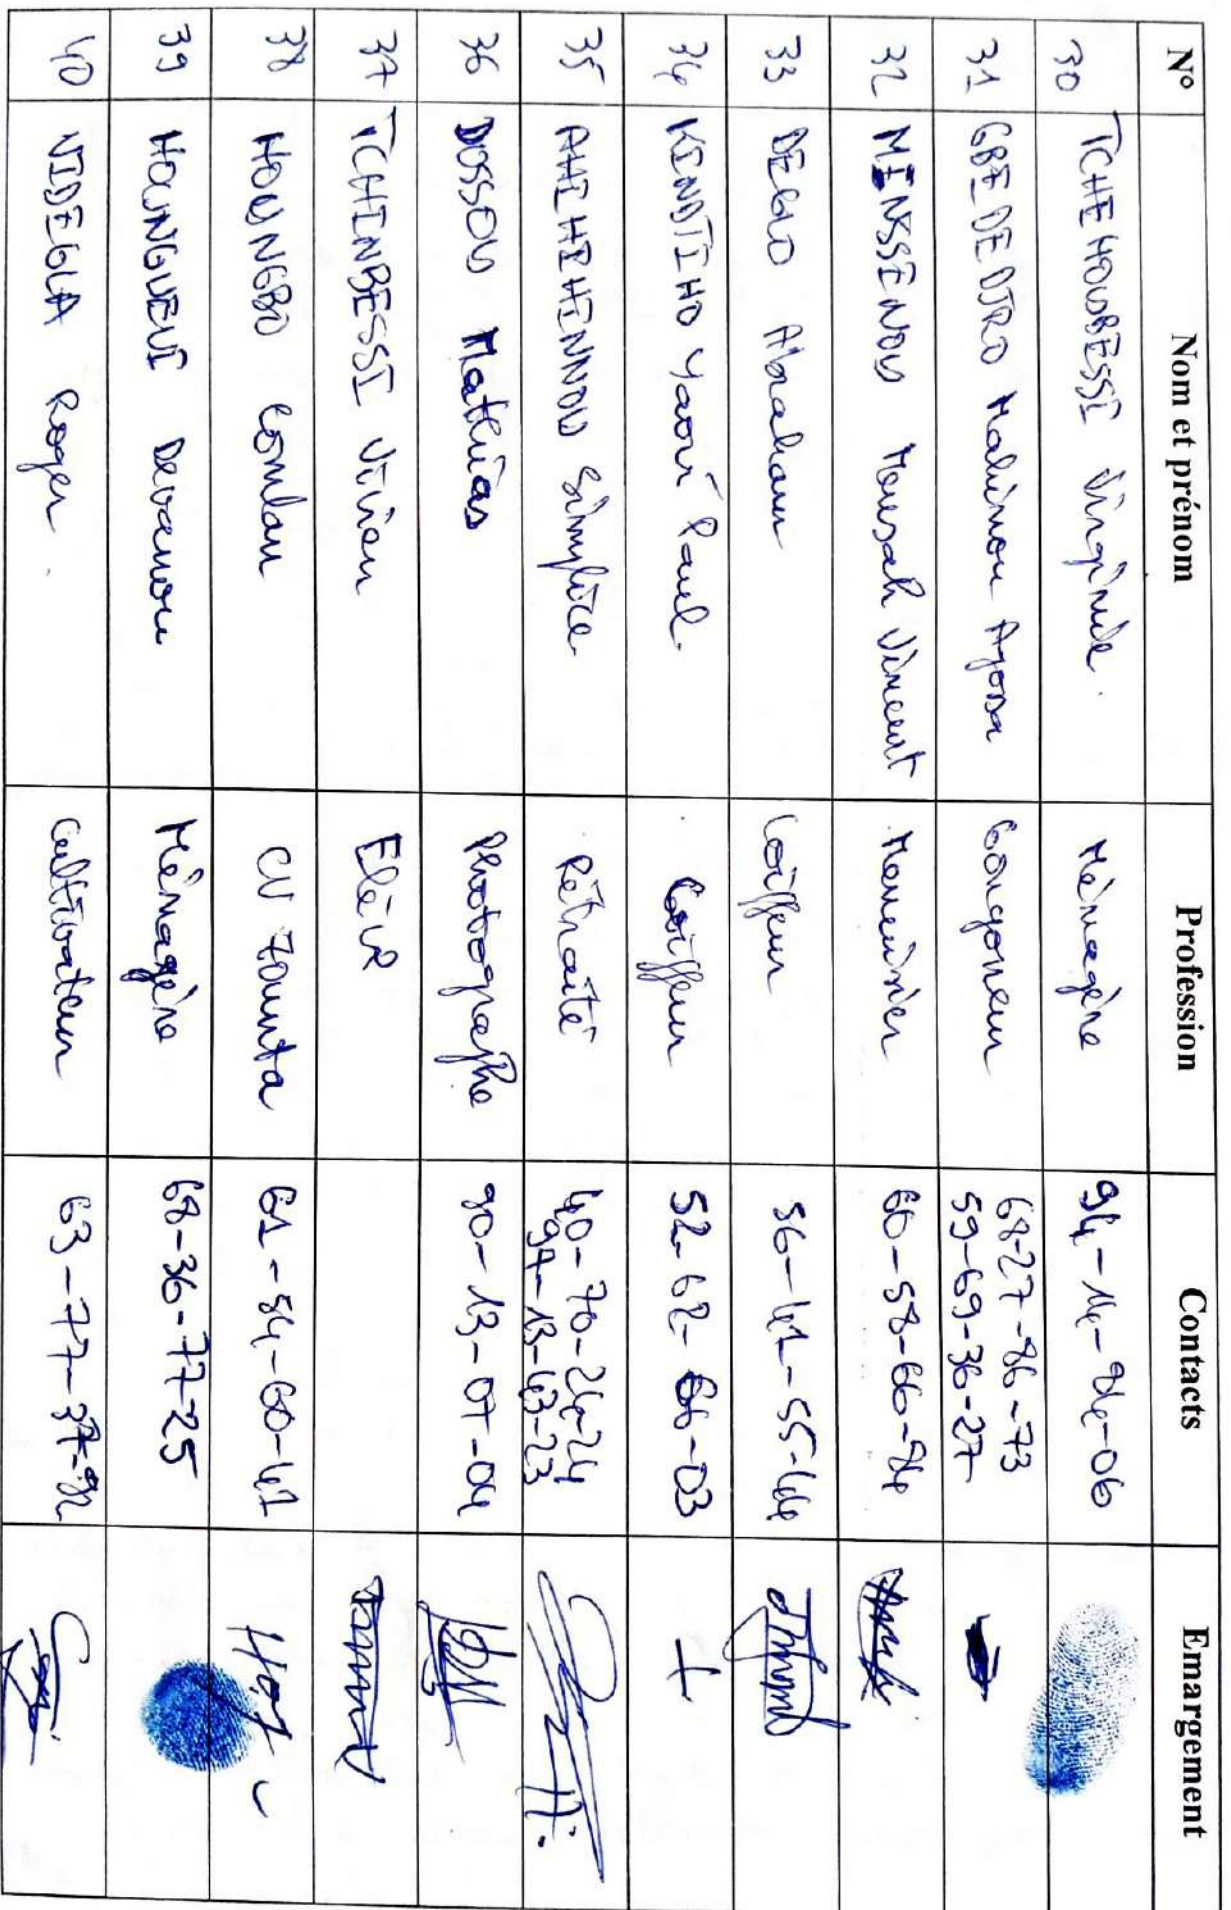 N° Nom et prénom Profession Contacts Emargement
30 TCHEHOUBESSI Virginie Ménagère 94-14-94-06
31 GBEDEDJRO Mahinou Agossa Songoneur 68-27-86-73
59-69-36-27
32 MENSSINOU Mensah Vincent Menuisier 60-58-66-94
33 DEGLO Abraham Coiffeur 56-41-55-44
34 KINDJIHO Yaovi Paul Coiffeur 52-62-66-03
35 AHIHIHINNOU Simplice Rétraité 40-70-24-24
97-13-43-23
36 DOSSOU Mathias Photographe 90-13-07-04
37 TCHINBESSI Vivien Elève
38 HOUNGBO Comlan CV Zounta 61-54-60-41
39 HOUNGUEVI Ménagère 68-36-77-25
40 VIDEGLA Roger Cultivateur 63-77-37-92